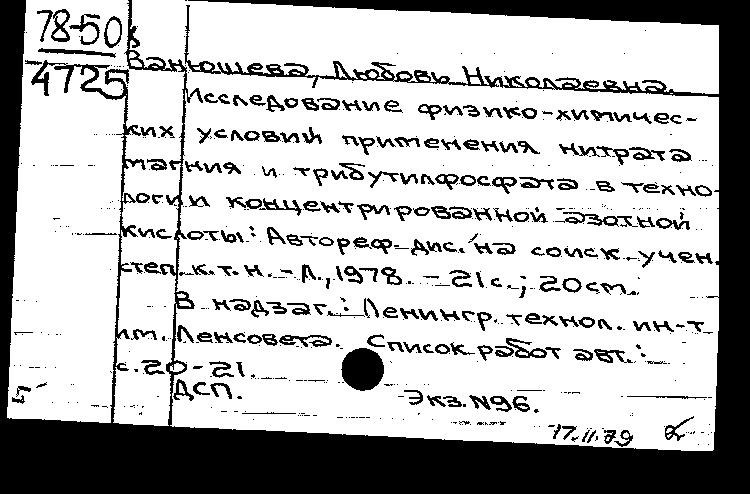 78-50
4725
Ванюшева, Любовь Николаевна.
Исследование физико-химичес-
ких условий применения нитрата
магния и трибутилфосфата в техно-
логии концентрированной азотной
кислоты: Автореф. дис. на соиск. учен.
степ. к.т.н. - Л., 1978. - 21 с.; 20 см.
В надзаг.: Ленингр. технол. ин-т
им. Ленсовета. Список работ авт.:
с. 20-21.
ДСП. Экз. N96.
17.11.79